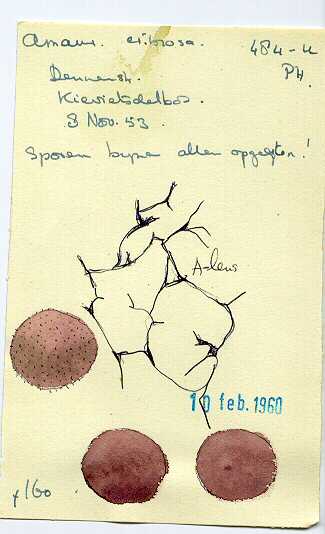 Amaur. cribrosa. 484-4
PH.
Dennensl.
Kievietsdelbos.
8 Nov. 53.
Sporen bijna allen opgegeten!
A-lens
10 feb. 1960
x160